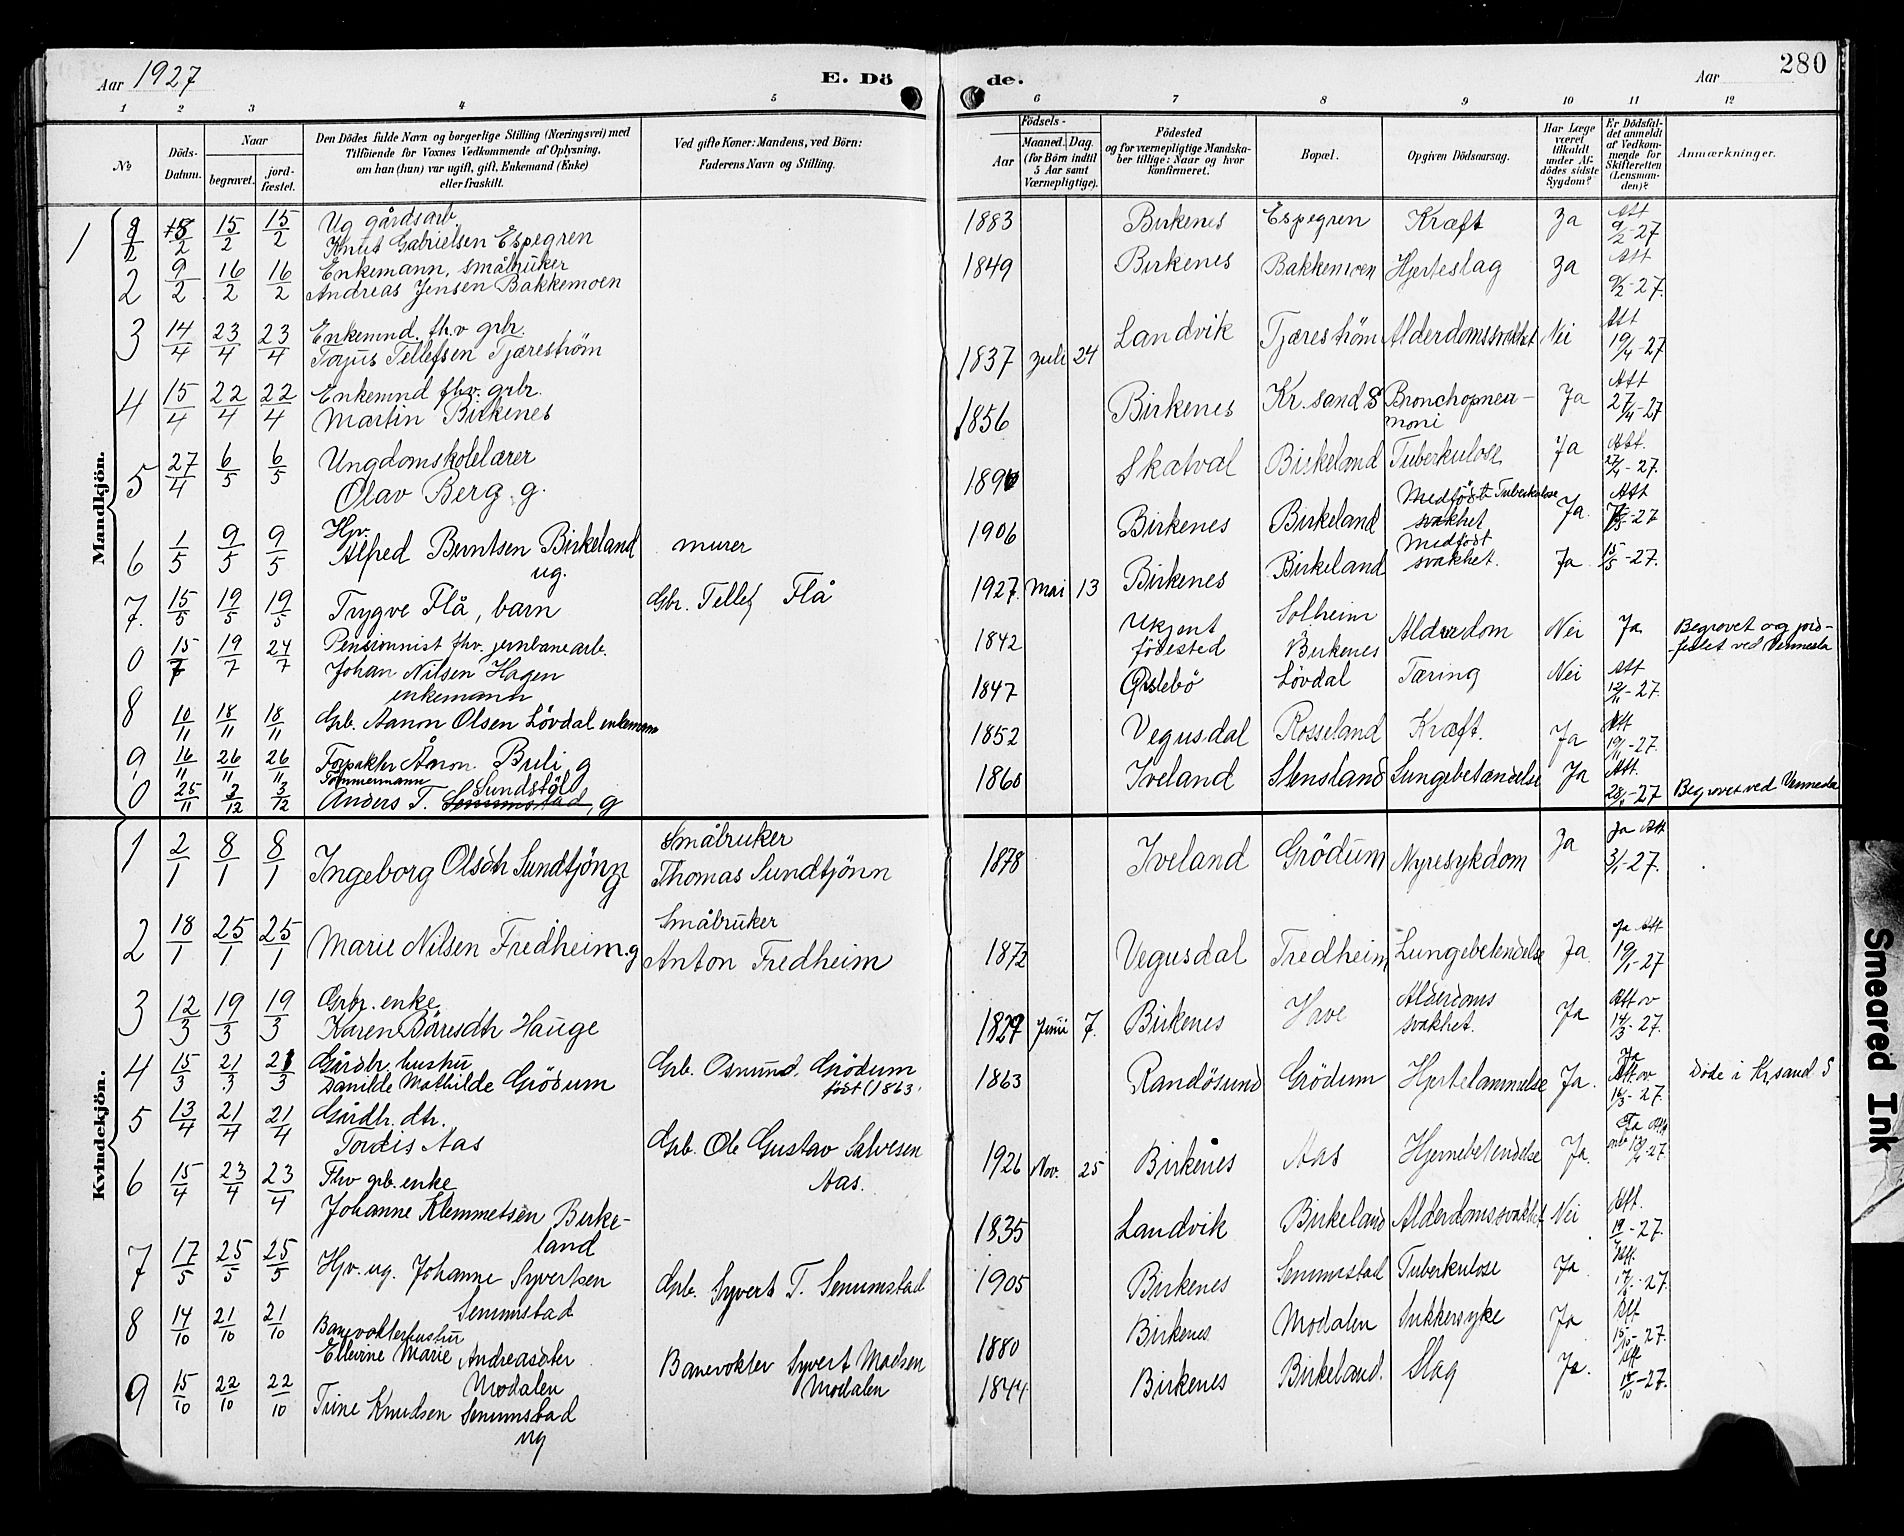 Aar 1927
E. Dö de.
Aar
280
1 2 3 4 5 6 7 8 9 10 11 12
№
Döds-Datum.
Naar
begravet.
jord-fæstet.
Den Dödes fulde Navn og borgerlige Stilling (Næringsvei) med
Tilföiende for Voxnes Vedkommende af Oplysning,
om han (hun) var ugift, gift, Enkemand (Enke)
eller fraskilt.
Ved gifte Koner: Mandens, ved Börn:
Faderens Navn og Stilling.
Födsels-
Aar
Maaned. Dag.
(for Börn indtil
5 Aar samt
Værnepligtige).
Födested
og for værnepligtige Mandska-
ber tillige: Naar og hvor
konfirmeret.
Bopæl.
Opgiven Dödsaarsag.
Har Læge
været
tilkaldt
under Af-
dödes sidste
Sygdom?
Er Dödsfal-
det anmeldt
af Vedkom-
mende for
Skifteretten
(Lensman-
den)?
Anmærkninger.
Mandkjön.
1 8/2 15/2 15/2 Ug gårdsarb Knut Gabrielsen Espegren 1883 Birkenes Espegren Kræft Ja Att 9/2-27
2 9/2 16/2 16/2 Enkemann, småbruker Andreas Jensen Bakkemoen 1849 Birkenes Bakkemoen Hjerteslag Ja Att 9/2-27.
3 14/4 23/4 23/4 Enkemnd. fh.v grbr. Torjus Tellefsen Tjæreström 1837 Juli 24 Landvik Tjæreström Alderdomssvakhet Nei Att 19/4-27
4 15/4 22/4 22/4 Enkemnd fhv. grbr. Martin Birkenes 1856 Birkenes Kr.sand S Bronchopneu-moni Ja Att 27/4-27
5 27/4 6/5 6/5 Ungdomskolelærer Olav Berg g. Skatval Birkeland Tuberkulose Ja Att. 27/4-27.
6 1/5 9/5 9/5 Hjv. Alfred Berntsen Birkeland ug. murer 1906 Birkenes Birkeland Tuberkulose Ja. Att -27
7. 15/5 19/5 19/5 Trygve Flå, barn Gbr. Tellef Flå 1927. Mai 13 Birkenes Birkeland Medfödt svakhet. Ja. 15/5-27.
0 15/7 19/7 24/7 Pensionnist fhv. jernbanearb. Johan Nilsen Hagen enkemann 1842 Ukjent födested Solheim Birkenes Alderdom Nei Ja Begravet og jord-festet ved Vennesla
8 10/11 18/11 18/11 Grb. Aanon Olsen Lövdal enkemann 1847 Öislebö Lövdal Tæring Nei Att 12/11-27.
9. 16/11 26/11 26/11 Forpakter Ånon Buli g 1852 Vegusdal Rosseland Kræft. Ja Att 19/11-27.
0 25/11 3/12 3/12 Tömmermann Anders T. Sundstöl g 1860 Iveland Stensland Lungebetændelse Ja Att. 28/11-27 Begravet ved Vennesla
Kvindekjön.
1 2/1 8/1 8/1 Ingeborg Olsdtr Sundtjönn g Småbruker Thomas Sundtjönn 1878 Iveland Grödum Nyresykdom Ja Ja Att 3/1-27.
2 18/1 25/1 25/1 Marie Nilsen Fredheim. g Småbruker Anton Fredheim 1872 Vegusdal Fredheim Lungebetendelse Ja. Ja Att 19/1-27
3 12/3 19/3 19/3 Grbr. enke Karen Båresdtr Hauge 1827 Juni 7. Birkenes Have Alderdoms svakhet. Ja Att ov 14/3-27.
4 15/3 21/3 21/3 Gårdbr. hustru Danilde Mathilde Grödum Grb. Osmund Grödum födt (1863. 1863 Randösund Grödum Hjertelammelse Ja. Ja Att ov 16/3-27. Döde i Kr.sand S
5 13/4 21/4 21/4 Gårdbr. dtr. Tordis Aas Grb. Ole Gustav Salvesen Aas. 1926 Nov. 25 Birkenes Aas Hjernebetendelse Ja. Ja Att 13/4-27.
6 15/4 23/4 23/4 Fhv grb. enke Johanne Klemmetsen Birke-land 1835 Landvik Birkeland Alderdomssvakhet Nei Att. 19/4-27.
7 17/5 25/5 25/5 Hjv. ug. Johanne Syvertsen Senumstad Grb. Syvert T. Senumstad 1905 Birkenes Senumstad Tuberkulose Ja. Att. 17/5-27.
8 14/10 21/10 21/10 Banevokterhustru Ellevine Marie Andreasdter Modalen Banevokter Syvert Madsen Modalen 1880 Birkenes Modalen Sukkersyke Ja Att 15/10-27.
9 15/10 22/10 22/10 Tine Knudsen Senumstad ug 1844 Birkenes Birkeland. Slag Ja. Att 15/10-27.
Smeared Ink